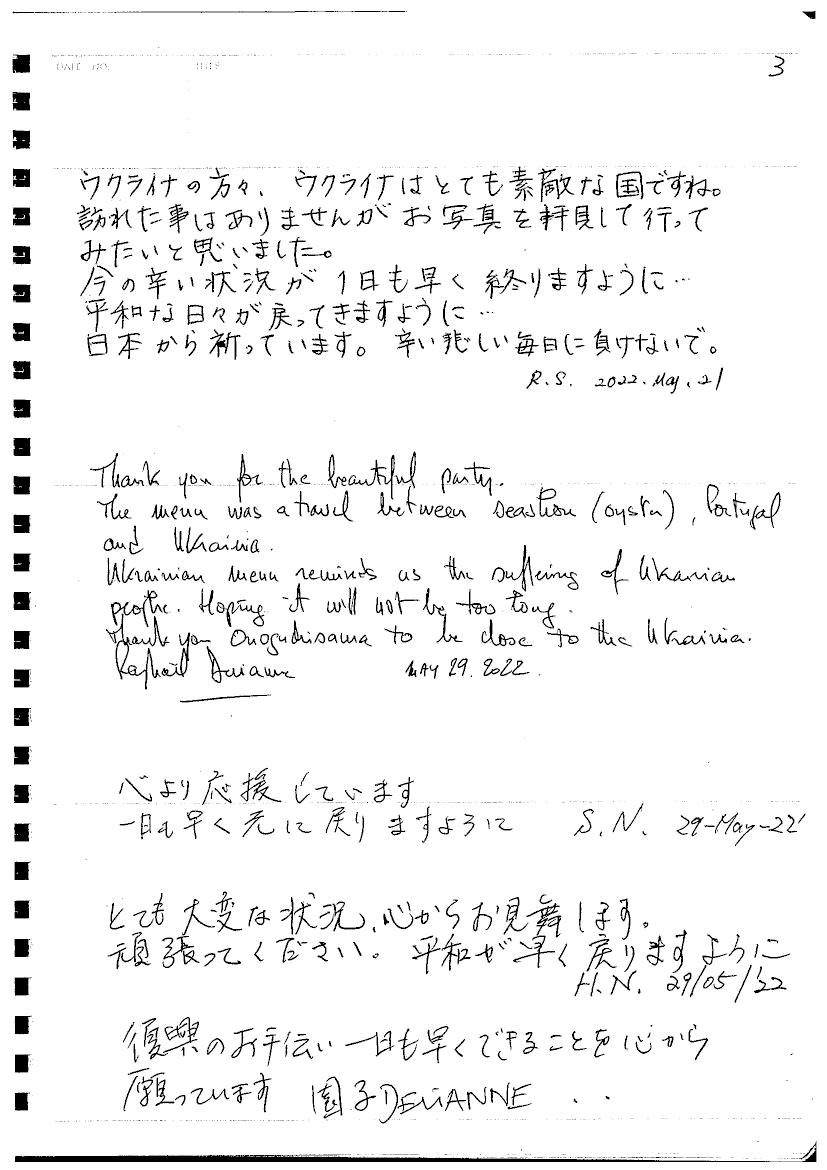 DATE NO. TITLE
3
ウクライナの方々、ウクライナはとても素敵な国ですね。
訪れた事はありませんがお写真を拝見して行って
みたいと思いました。
今の辛い状況が1日も早く終りますように…
平和な日々が戻ってきますように…
日本から祈っています。辛い悲しい毎日に負けないで。
R.S. 2022. May. 21
Thank you for the beautiful party.
The menu was a travel between (oyster), Portugal
and Ukrainia.
Ukrainian menu reminds us the suffering of Ukranian
people. Hoping it will not be too long.
Thank you to be close to the Ukrainia.
Raphaël MAY 29. 2022.
心より応援しています
一日も早く元に戻りますように S.N. 29-May-22
とても大変な状況、心からお見舞します。
頑張ってください。平和が早く戻りますように
H.N. 29/05/'22
復興のお手伝い一日も早くできることを心から
願っています 園子 DELIANNE . .